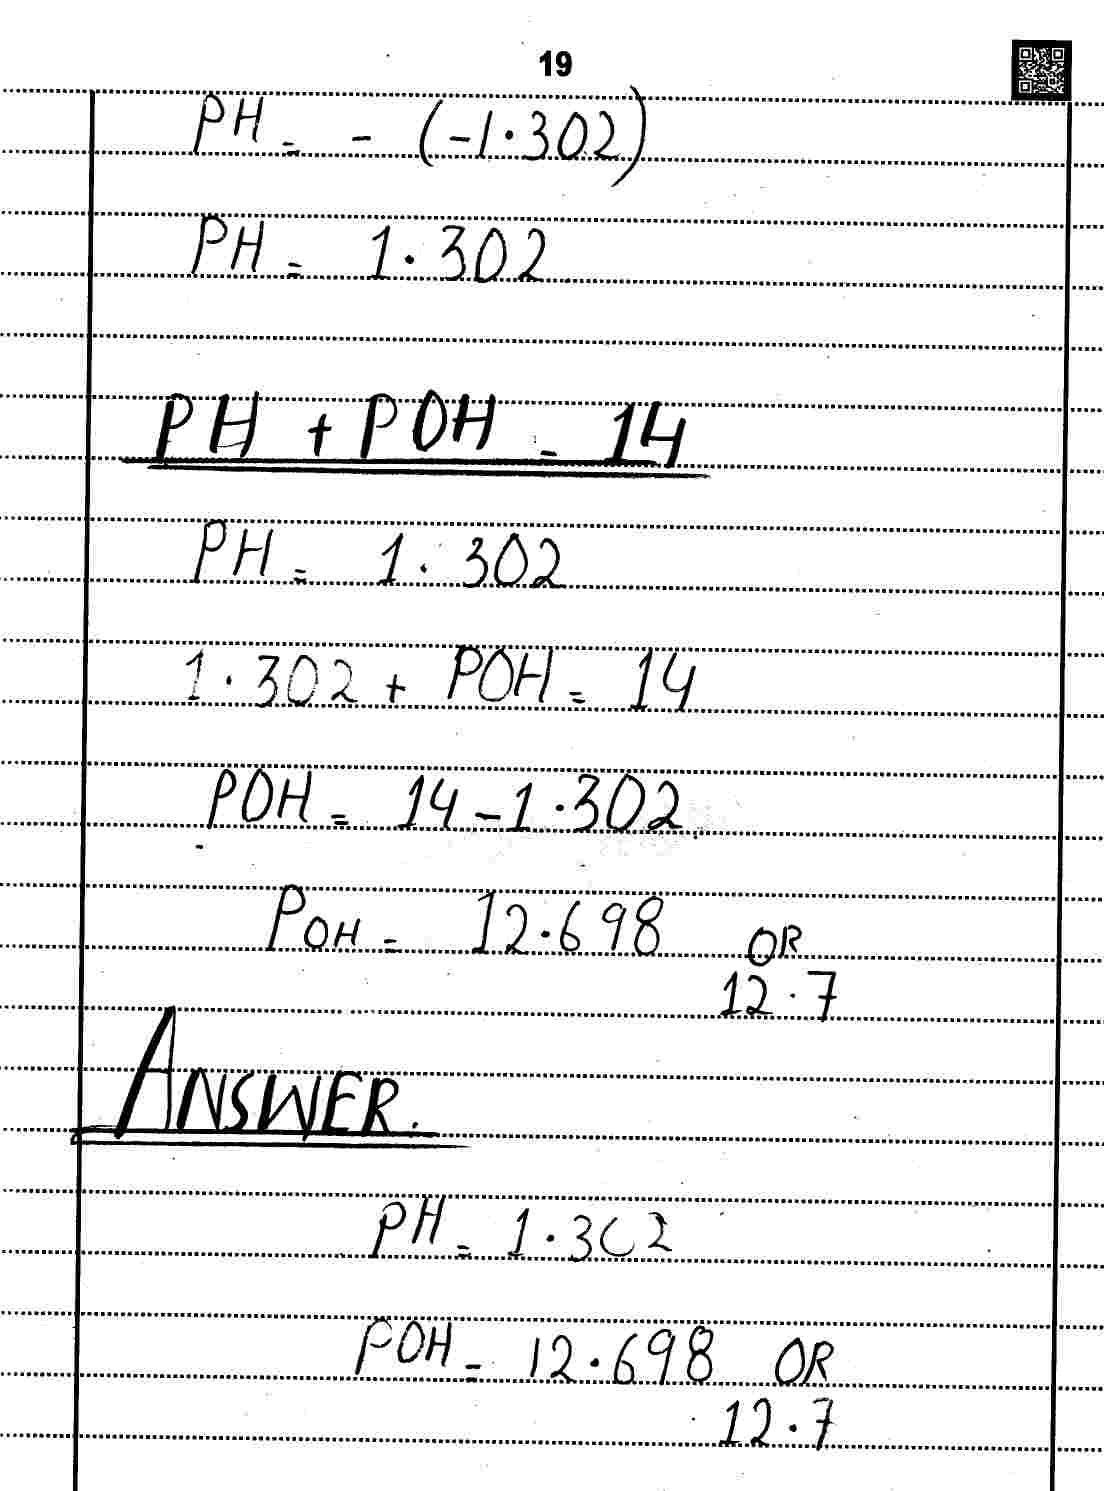 19
PH = - (-1.302)
PH = 1.302
PH + POH = 14
PH = 1.302
1.302 + POH = 14
POH = 14 - 1.302
POH = 12.698 OR
12.7
ANSWER.
PH = 1.302
POH = 12.698 OR
12.7